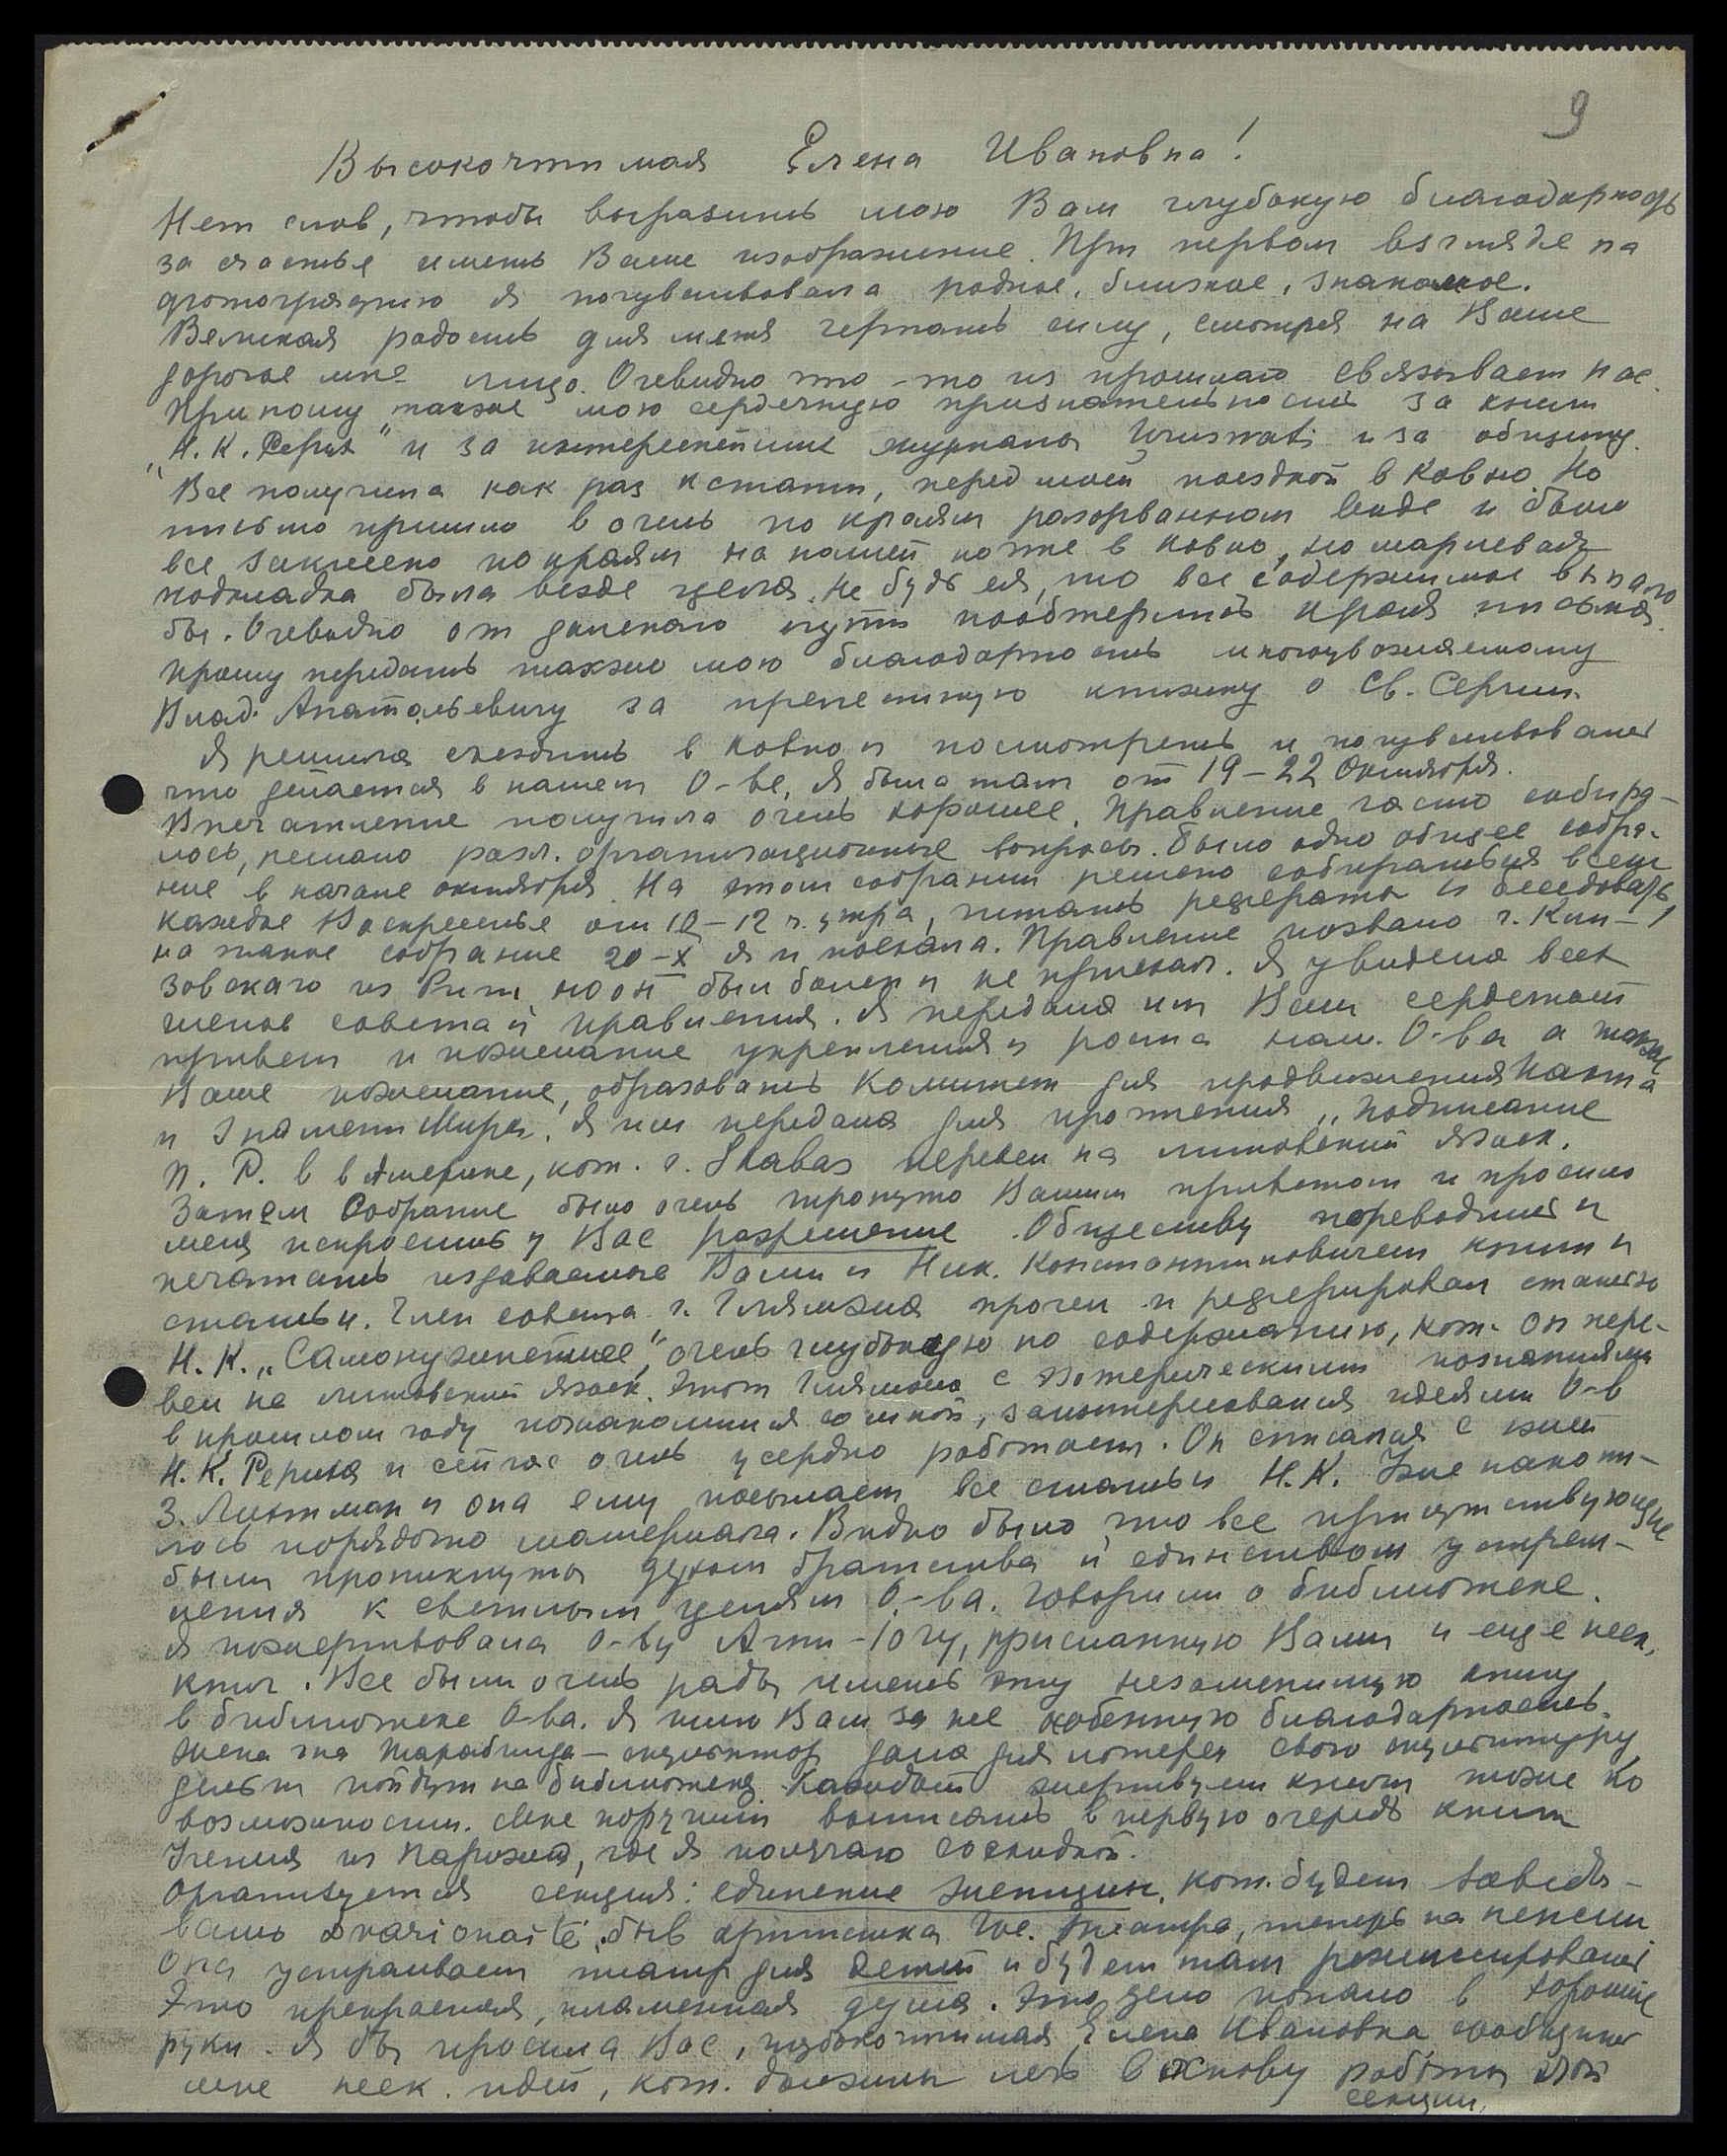 9
Высокочтимая Елена Ивановна!
Нет слов, чтобы выразить мою Вам глубокую благодарность
за счастье иметь Ваше изображение. При первом взгляде на
фотографию я почувствовала родное, близкое, знакомое.
Великая радость для меня черпать силу, смотря на Ваше
дорогое мне лицо. Очевидно что-то из прошлаго связывает нас.
Приношу также мою сердечную признательность за книги
„Н. К. Рерих" и за интереснейшие журналы Urusvati и за общину.
Все получила как раз кстати, перед моей поездкой в Ковно. Но
письмо пришло в очень по краям разорванном виде и было
все заклеено по краям на нашей почте в Ковно, но марлевая
подкладка была везде цела. Не будь ея, то все содержимое выпало
бы. Очевидно от далекаго пути пообтерлись края письма.
Прошу передать также мою благодарность многоуважаемому
Влад. Анатольевичу за прелестную книжку о Св. Сергии.
Я решила съездить в Ковно и посмотреть и почувствовать
что делается в нашем О-ве. Я была там от 19-22 Октября.
Впечатление получила очень хорошее. Правление часто собира-
лось, решало разл. организационные вопросы. Было одно общее собра-
ние в начале октября. На этом собрании решено собираться всем
каждое Воскресенье от 10-12 ч. утра, читать рефераты и беседовать,
на такое собрание 20-X я и поехала. Правление позвало г. Кли-
зовскаго из Риги, но он был болен и не приехал. Я увидела всех
членов совета и правления. Я передала им Ваш сердечный
привет и пожелание укрепления и роста наш. О-ва а также
Ваше пожелание, образовать Комитет для продвижения Пакта
и Знамени Мира. Я им передала для прочтения „Подписание
П. Р. в в Америке, кот. г. Skabas перевел на литовский язык.
Затем Собрание было очень тронуто Вашим приветом и просило
меня испросить у Вас разрешение Обществу переводить и
печатать издаваемые Вами и Ник. Константиновичем книги и
статьи. Член совета г. прочел и реферировал статью
Н. К. „Самонужнейшее", очень глубокую по содержанию, кот. он пере-
вел на литовский язык. Этот с эзотерическими познаниями
в прошлом году познакомился со мной, заинтересовался идеями О-в
Н. К. Рериха и сейчас очень усердно работает. Он списался с
З. Лихтман и она ему посылает все статьи Н. К. Уже накопи-
лось порядочно материала. Видно было что все присутствующие
были проникнуты духом братства и единством устрем-
ления к светлым целям О-ва. Говорили о библиотеке.
Я пожертвовала О-ву Агни-Йогу, присланную Вами и еще неск.
книг. Все были очень рады иметь эту незаменимую книгу
в библиотеке О-ва. Я шлю Вам за нее особенную благодарность.
Жена г-на Тарабильда - скульптор дала для лотереи свою скульптуру
деньги пойдут на библиотеку. Каждый жертвует книги тоже по
возможности. Мне поручили выписать в первую очередь книги
Учения из Парижа, где я получаю со скидкой.
Организуется секция: единение женщин, кот. будет заведы-
вать Dvarionaitė, быв. артистка Гос. театра, теперь на пенсии
Она устраивает театр для детей и будет там режиссировать
Это прекрасная, пламенная душа. Это дело попало в хорошие
руки. Я бы просила Вас, глубокочтимая Елена Ивановна сообщить
мне неск. идей, кот. должны лечь в основу работы этой
секции.